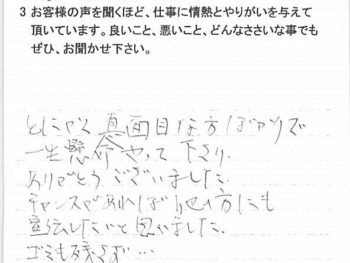 3 お客様の声を聞くほど、仕事に情熱とやりがいを与えて
頂いています。良いこと、悪いこと、どんなささいな事でも
ぜひ、お聞かせ下さい。
とにかく真面目な方ばかりで
一生懸命やって下さり、
ありがとうございました。
チャンスがあれば他の方にも
宣伝したいと思いました。
ゴミも残さず…